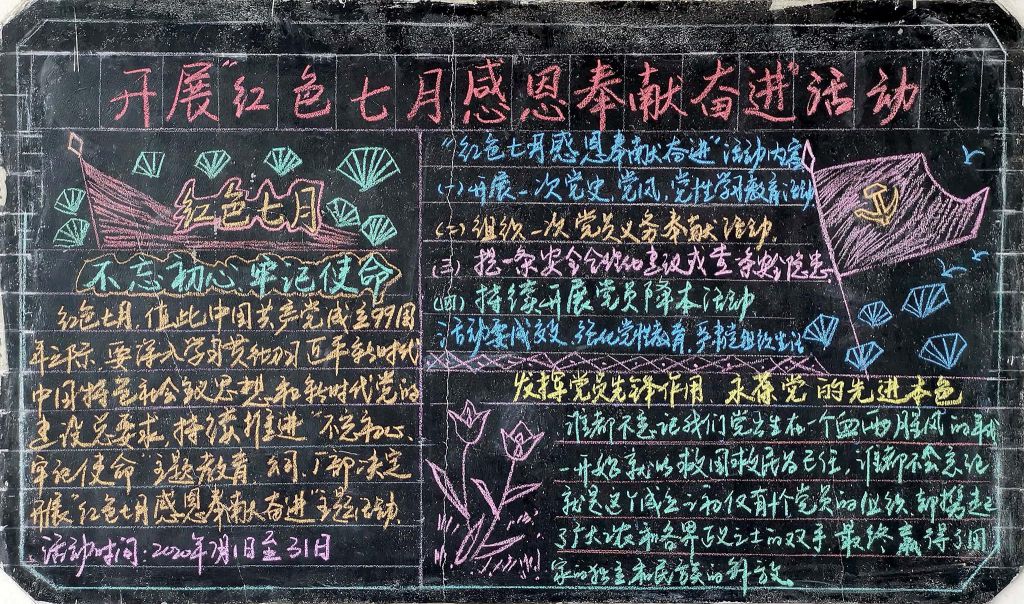 开展“红色七月感恩奉献奋进”活动
红色七月
不忘初心 牢记使命
红色七月,值此中国共产党成立99周
年之际,要深入学习贯彻习近平新时代
中国特色社会主义思想和新时代党的
建设总要求,持续推进“不忘初心、
牢记使命”主题教育,公司、厂部决定
开展“红色七月感恩奉献奋进”主题活动、
活动时间:2020年7月1日至31日
“红色七月感恩奉献奋进”活动内容
(一)开展一次党史、党风、党性学习教育活动
(二)组织一次党员义务奉献活动、
(三)提一条安全合理化建议或查一条安全隐患
(四)持续开展党员降本活动
活动要成效、强化党性教育、严肃组织生活
发挥党员先锋作用 永葆党的先进本色
谁都不忘记我们党产生在一个血雨腥风的年代
一开始就以救国救民为己任,谁都不会忘记
就是这个成立之初仅有几十个党员的组织,却携起
了广大工农和各界正义之士的双手,最终赢得了国
家的独立和民族的解放